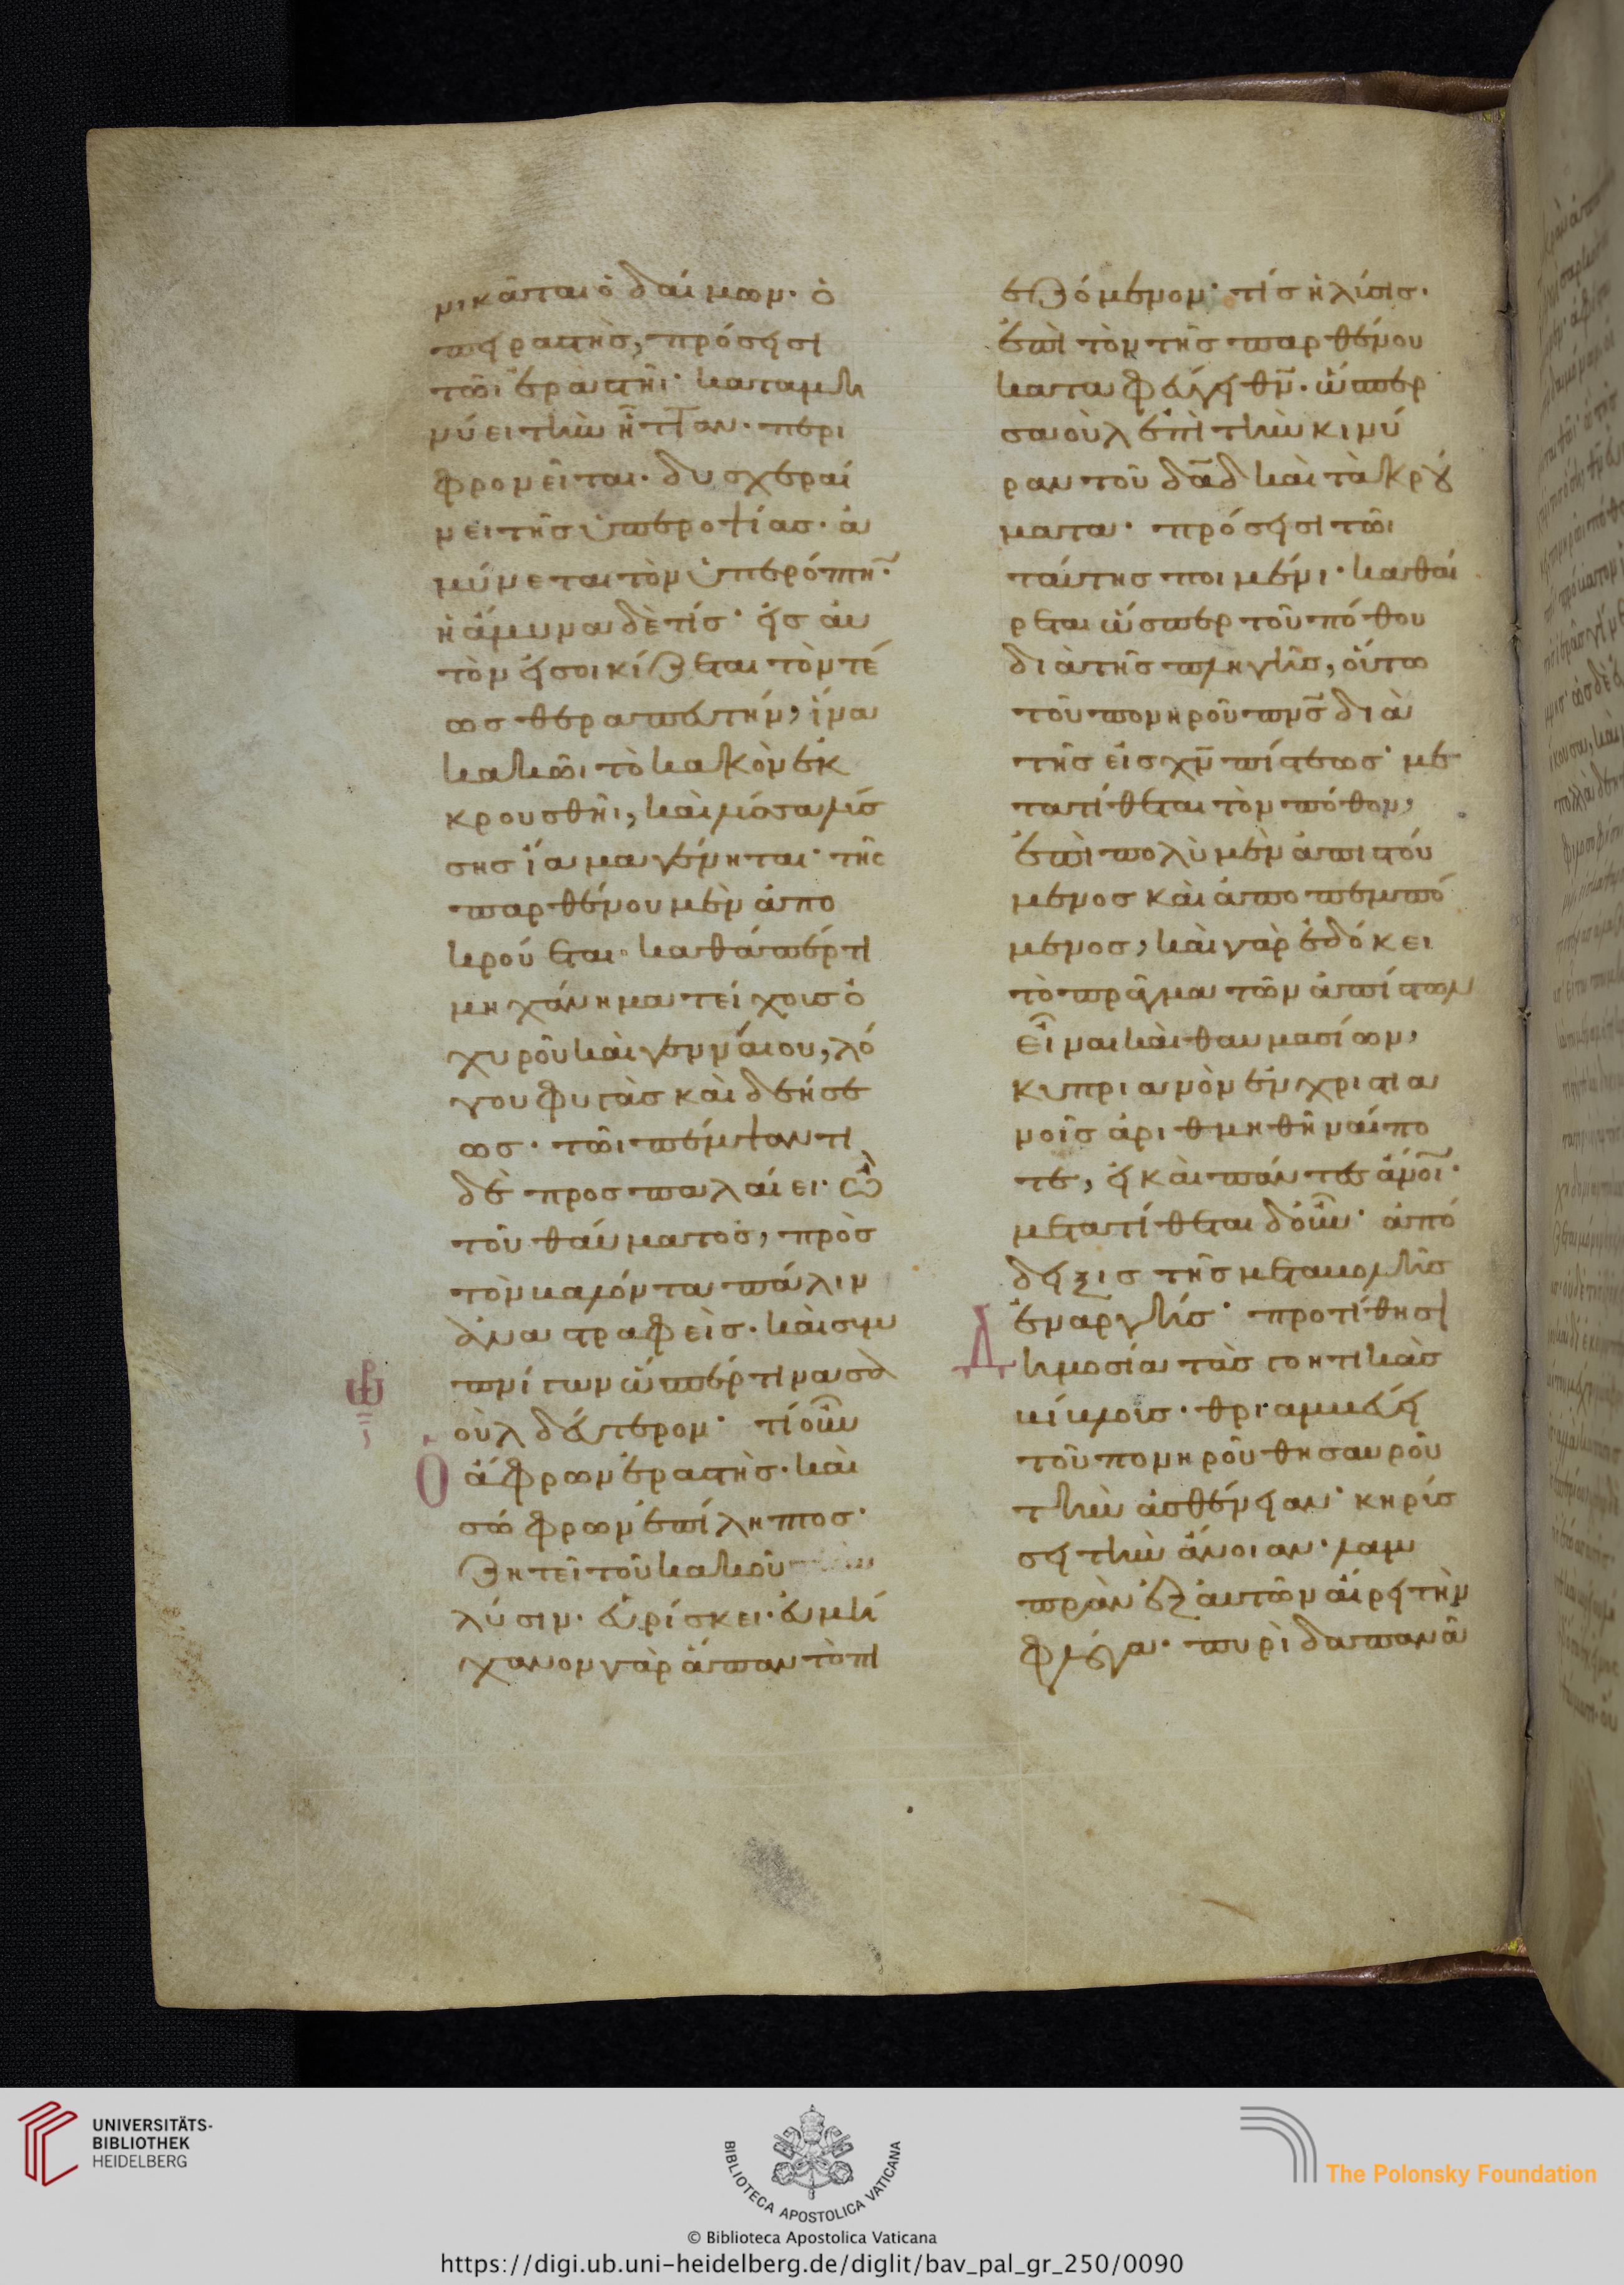 νικᾶται ὁ δαίμων· ὁ
πειραστὴς, πρόσεισι
τῶι ἐραστῆι· καταμη
νύει τὴν ἧτταν· περι
φρονεῖται· δυσχεραί
νει τῆς ὑπεροψίας· ἀ
μύνεται τὸν ὑπερόπτην·
ἡ ἄμυνα δὲ τίς· εἰς αὐ
τὸν εἰσοικίζεται τὸν τέ
ως θεραπευτήν, ἵνα
κακῶι τὸ κακὸν ἐκ
κρουσθῆι, καὶ λύσσα λύσ
σης ἴαμα γένηται· τῆς
παρθένου μὲν ἀπο
κρούεται· καθάπέρ τι
μηχάνημα τείχους ὀ
χυροῦ καὶ γενναίου, λό
γου φυγὰς καὶ δεήσε
ως· τῶι πέμψαντι
δὲ προσπαλαίει· ὢ
τοῦ θαύματος, πρὸς
τὸν καλοῦντα πάλιν
ἀναστραφεὶς· καὶ συμ
πνίγων ὥσπέρ τινα σα
οὺλ δεύτερον· τί οὖν
ὁ ἄφρων ἐραστὴς· καὶ
σώφρων ἐπίληπτος·
ζητεῖ τοῦ κακοῦ
λύσιν· εὑρίσκει· εὐμή
χανον γὰρ ἅπαν τὸ πι
εζόμενον· τίς ἡ λύσις·
ἐπὶ τὸν τῆς παρθένου
καταφεύγει θν· ὥσπερ
σαοὺλ ἐπὶ τὴν κινύ
ραν τοῦ δαδ καὶ τὰ κρού
ματα· πρόσεισι τῶι
ταύτης ποιμένι· καθαί
ρεται ὥσπερ τοῦ πόθου
διὰ τῆς πληγῆς, οὕτω
τοῦ πονηροῦ πνς διὰ
τῆς εἰς χν πίστεως· με
τατίθεται τὸν πόθον,
ἐπὶ πολὺ μὲν ἀπιστού
μενος καὶ ἀποπεμπό
μενος, καὶ γὰρ ἐδόκει
τὸ πρᾶγμα τῶν ἀπίστων
εἶναι καὶ θαυμασίων,
κυπριανὸν ἐν χριστια
νοῖς ἀριθμηθῆναί πο
τε, εἰ καὶ πάντες ἄνοι·
μετατίθεται δ' οὖν· ἀπό
δειξις τῆς μεταβολῆς
ἐναργής· προτίθησι
δημοσία τὰς γοητικὰς
βίβλους· θριαμβεύει
τοῦ πονηροῦ θησαυροῦ
τὴν ἀσθένειαν· κηρύσ
σει τὴν ἄνοιαν· λαμ
πρὰν ἐξ αὐτῶν αἴρει τὴν
φλόγα· πυρὶ δαπανᾶ
UNIVERSITÄTS-
BIBLIOTHEK
HEIDELBERG
BIBLIOTECA APOSTOLICA VATICANA
© Biblioteca Apostolica Vaticana
The Polonsky Foundation
https://digi.ub.uni-heidelberg.de/diglit/bav_pal_gr_250/0090